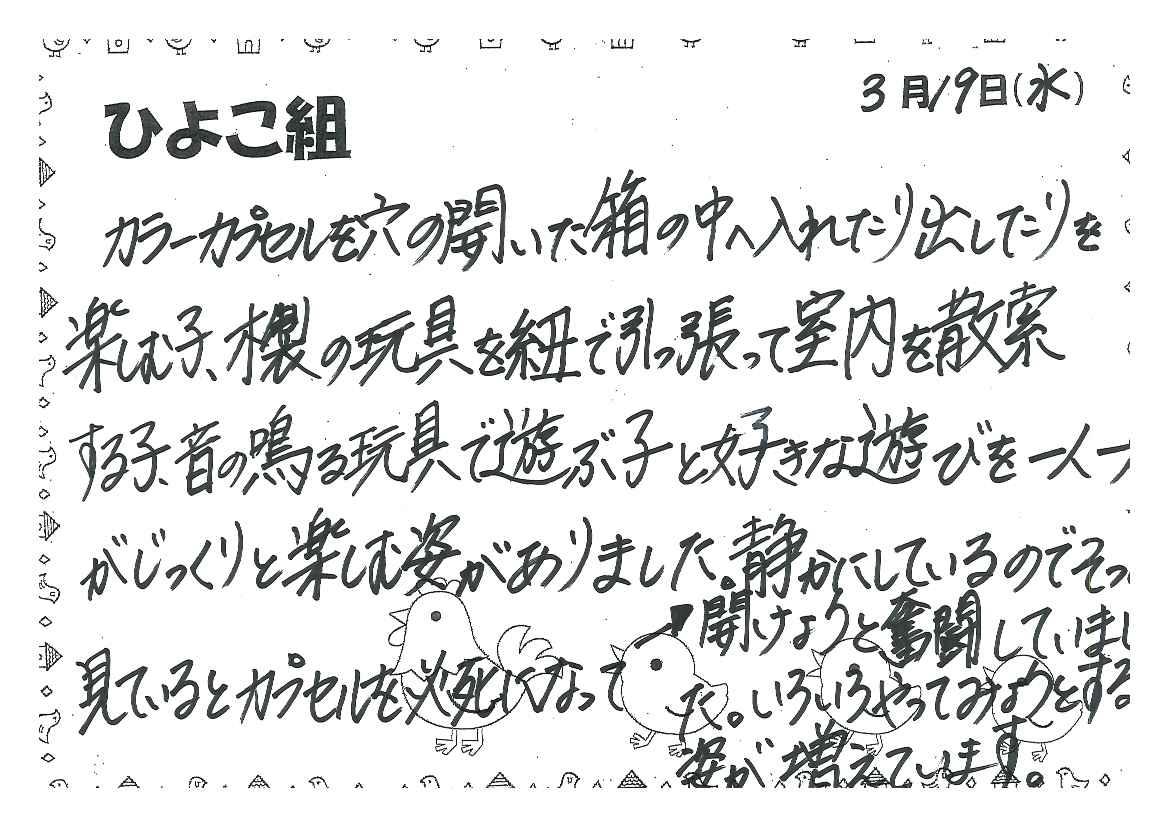 3月19日(水)
ひよこ組
カラーカプセルを穴の開いた箱の中へ入れたり出したりを
楽しむ子、木製の玩具を紐で引っ張って室内を散索
する子、音の鳴る玩具で遊ぶ子と好きな遊びを一人一
がじっくりと楽しむ姿がありました。静かにしているのでそっ
見ているとカプセルを必死になって
開けようと奮闘していまし
た。いろいろやってみようとする
姿が増えています。